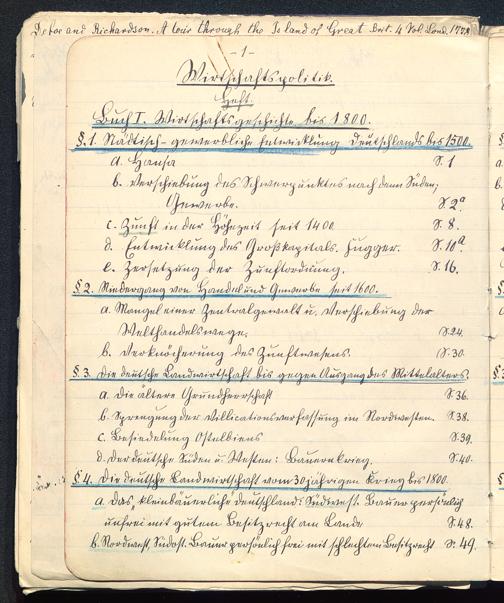 Defoe and Richardson. A tour through the Island of Great Brit. 4 Vol. Lond. 1778
- 1 -
Wirtschaftspolitik.
Heft.
Buch I. Wirtschaftsgeschichte bis 1800.
§. 1. Städtisch-gewerbliche Entwicklung Deutschlands bis 1500.
a. Hansa S. 1
b. Verschiebung des Schwerpunktes nach dem Süden;
Gewerbe. S. 2ª
c. Zunft in der Höhezeit seit 1400 S. 8.
d. Entwicklung des Großkapitals. Fugger. S. 10ª
e. Zersetzung der Zunftordnung. S. 16.
§ 2. Niedergang von Handel und Gewerbe seit 1600.
a. Mangel einer Zentralgewalt u. Verschiebung der
Welthandelswege. S. 24.
b. Verknöcherung des Zunftwesens. S. 30.
§ 3. Die deutsche Landwirtschaft bis gegen Ausgang des Mittelalters.
a. Die ältere Grundherrschaft S. 36.
b. Sprengung der Villicationsverfassung im Nordwesten. S. 38.
c. Besiedelung Ostelbiens S. 39.
d. Der deutsche Süden u. Westen: Bauernkrieg. S. 40.
§ 4. Die deutsche Landwirtschaft vom 30jährigen Krieg bis 1800.
a. Das „kleinbäuerliche" Deutschland: Südwest. Bauer persönlich
unfrei mit gutem Besitzrecht am Lande S. 48.
b. Nordwest, Südost. Bauer persönlich frei mit schlechtem Besitzrecht S. 49.